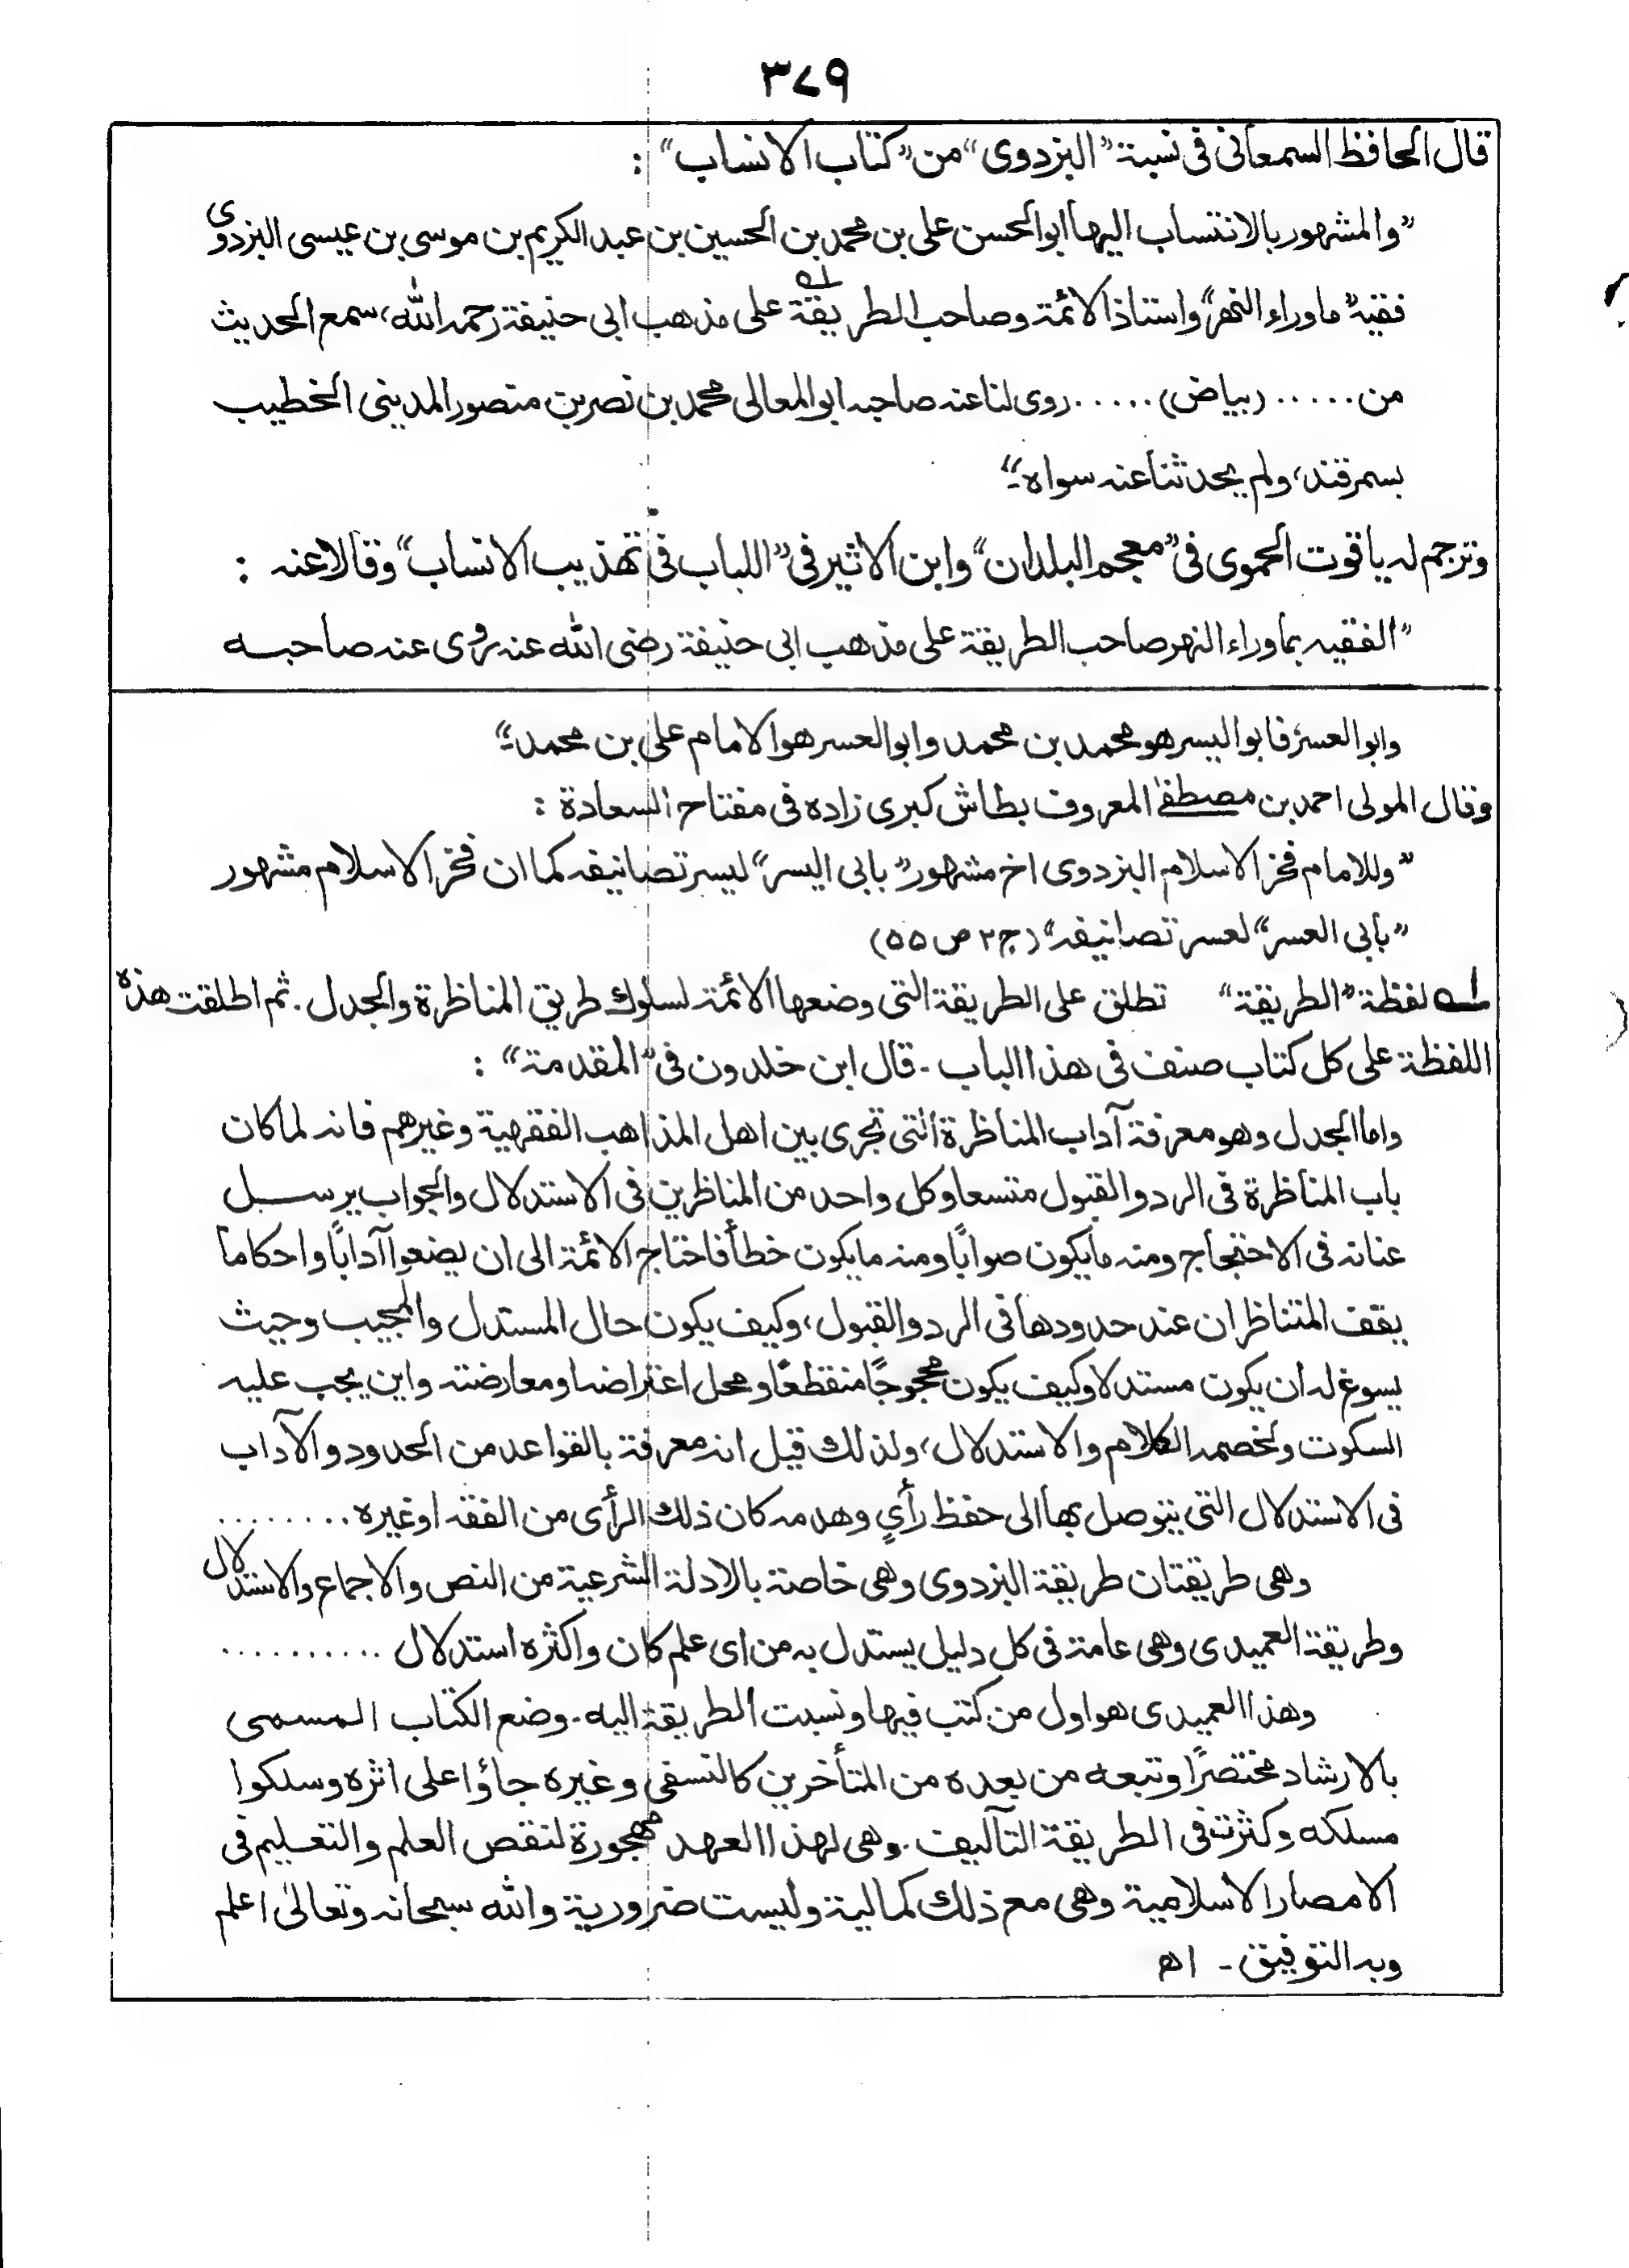 ٣٧٩
قال الحافظ السمعانى فى نسبة ”البزدوى“ من ”كتاب الانساب“ :
”والمشهور بالانتساب اليها ابوالحسن على بن محمد بن الحسين بن عبد الكريم بن موسى بن عيسى البزدوى
فقيه ”ماوراء النهر“ واستاذ الائمة وصاحب الطريقة لـه على مذهب ابى حنيفة رحمه الله، سمع الحديث
من ..... (بياض) ..... روى لنا عنه صاحبه ابوالمعالى محمد بن نصر بن منصور المدينى الخطيب
بسمرقند، ولم يحدثنا عنه سواه۔“
وترجم له ياقوت الحموى فى ”معجم البلدان“ وابن الاثير فى ”اللباب فى تهذيب الانساب“ وقالا عنه :
”الفقيه بماوراء النهر صاحب الطريقة على مذهب ابى حنيفة رضى الله عنه روى عنه صاحبه
وابوالعسر، فابواليسر هو محمد بن محمد وابوالعسر هو الامام على بن محمد۔“
وقال المولى احمد بن مصطفىٰ المعروف بطاش كبرى زاده فى مفتاح السعادة :
”وللامام فخر الاسلام البزدوى اخ مشهور ”بابى اليسر“ ليسر تصانيفه كما ان فخر الاسلام مشهور
”بأبى العسر“ لعسر تصانيفه“ (ج٢ ص ٥٥)
لـه لفظة ”الطريقة“ تطلق على الطريقة التى وضعها الائمة لسلوك طريق المناظرة والجدل. ثم اطلقت هذه
اللفظة على كل كتاب صنف فى هذا الباب - قال ابن خلدون فى ”المقدمة“ :
واما الجدل وهو معرفة آداب المناظرة التى تجرى بين اهل المذاهب الفقهية وغيرهم فانه لما كان
باب المناظرة فى الرد والقبول متسعا وكل واحد من المناظرين فى الاستدلال والجواب يرسل
عنانه فى الاحتجاج ومنه مايكون صوابًا ومنه مايكون خطأ فاحتاج الائمة الى ان يضعوا آدابًا واحكاماً
يقف المتناظران عند حدودها فى الرد والقبول، وكيف يكون حال المستدل والمجيب وحيث
يسوغ له ان يكون مستدلا وكيف يكون محجوجًا منقطعًا ومحل اعتراضه او معارضته واين يجب عليه
السكوت ولخصمه الكلام والاستدلال، ولذلك قيل انه معرفة بالقواعد من الحدود والآداب
فى الاستدلال التى يتوصل بها الى حفظ رأىٍ وهدمه كان ذلك الرأى من الفقه او غيره ........
وهى طريقتان طريقة البزدوى وهى خاصة بالادلة الشرعية من النص والاجماع والاستدلال
وطريقة العميدى وهى عامة فى كل دليل يستدل به من اى علم كان واكثره استدلال ..........
وهذا العميدى هو اول من كتب فيها ونسبت الطريقة اليه. وضع الكتاب المسمى
بالارشاد مختصرًا وتبعه من بعده من المتأخرين كالنسفى وغيره جاؤا على اثره وسلكوا
مسلكه وكثرت فى الطريقة التآليف. وهى لهذا العهد مهجورة لنقص العلم والتعليم فى
الامصار الاسلامية وهى مع ذلك كمالية وليست ضرورية والله سبحانه وتعالىٰ اعلم
وبه التوفيق - اهـ